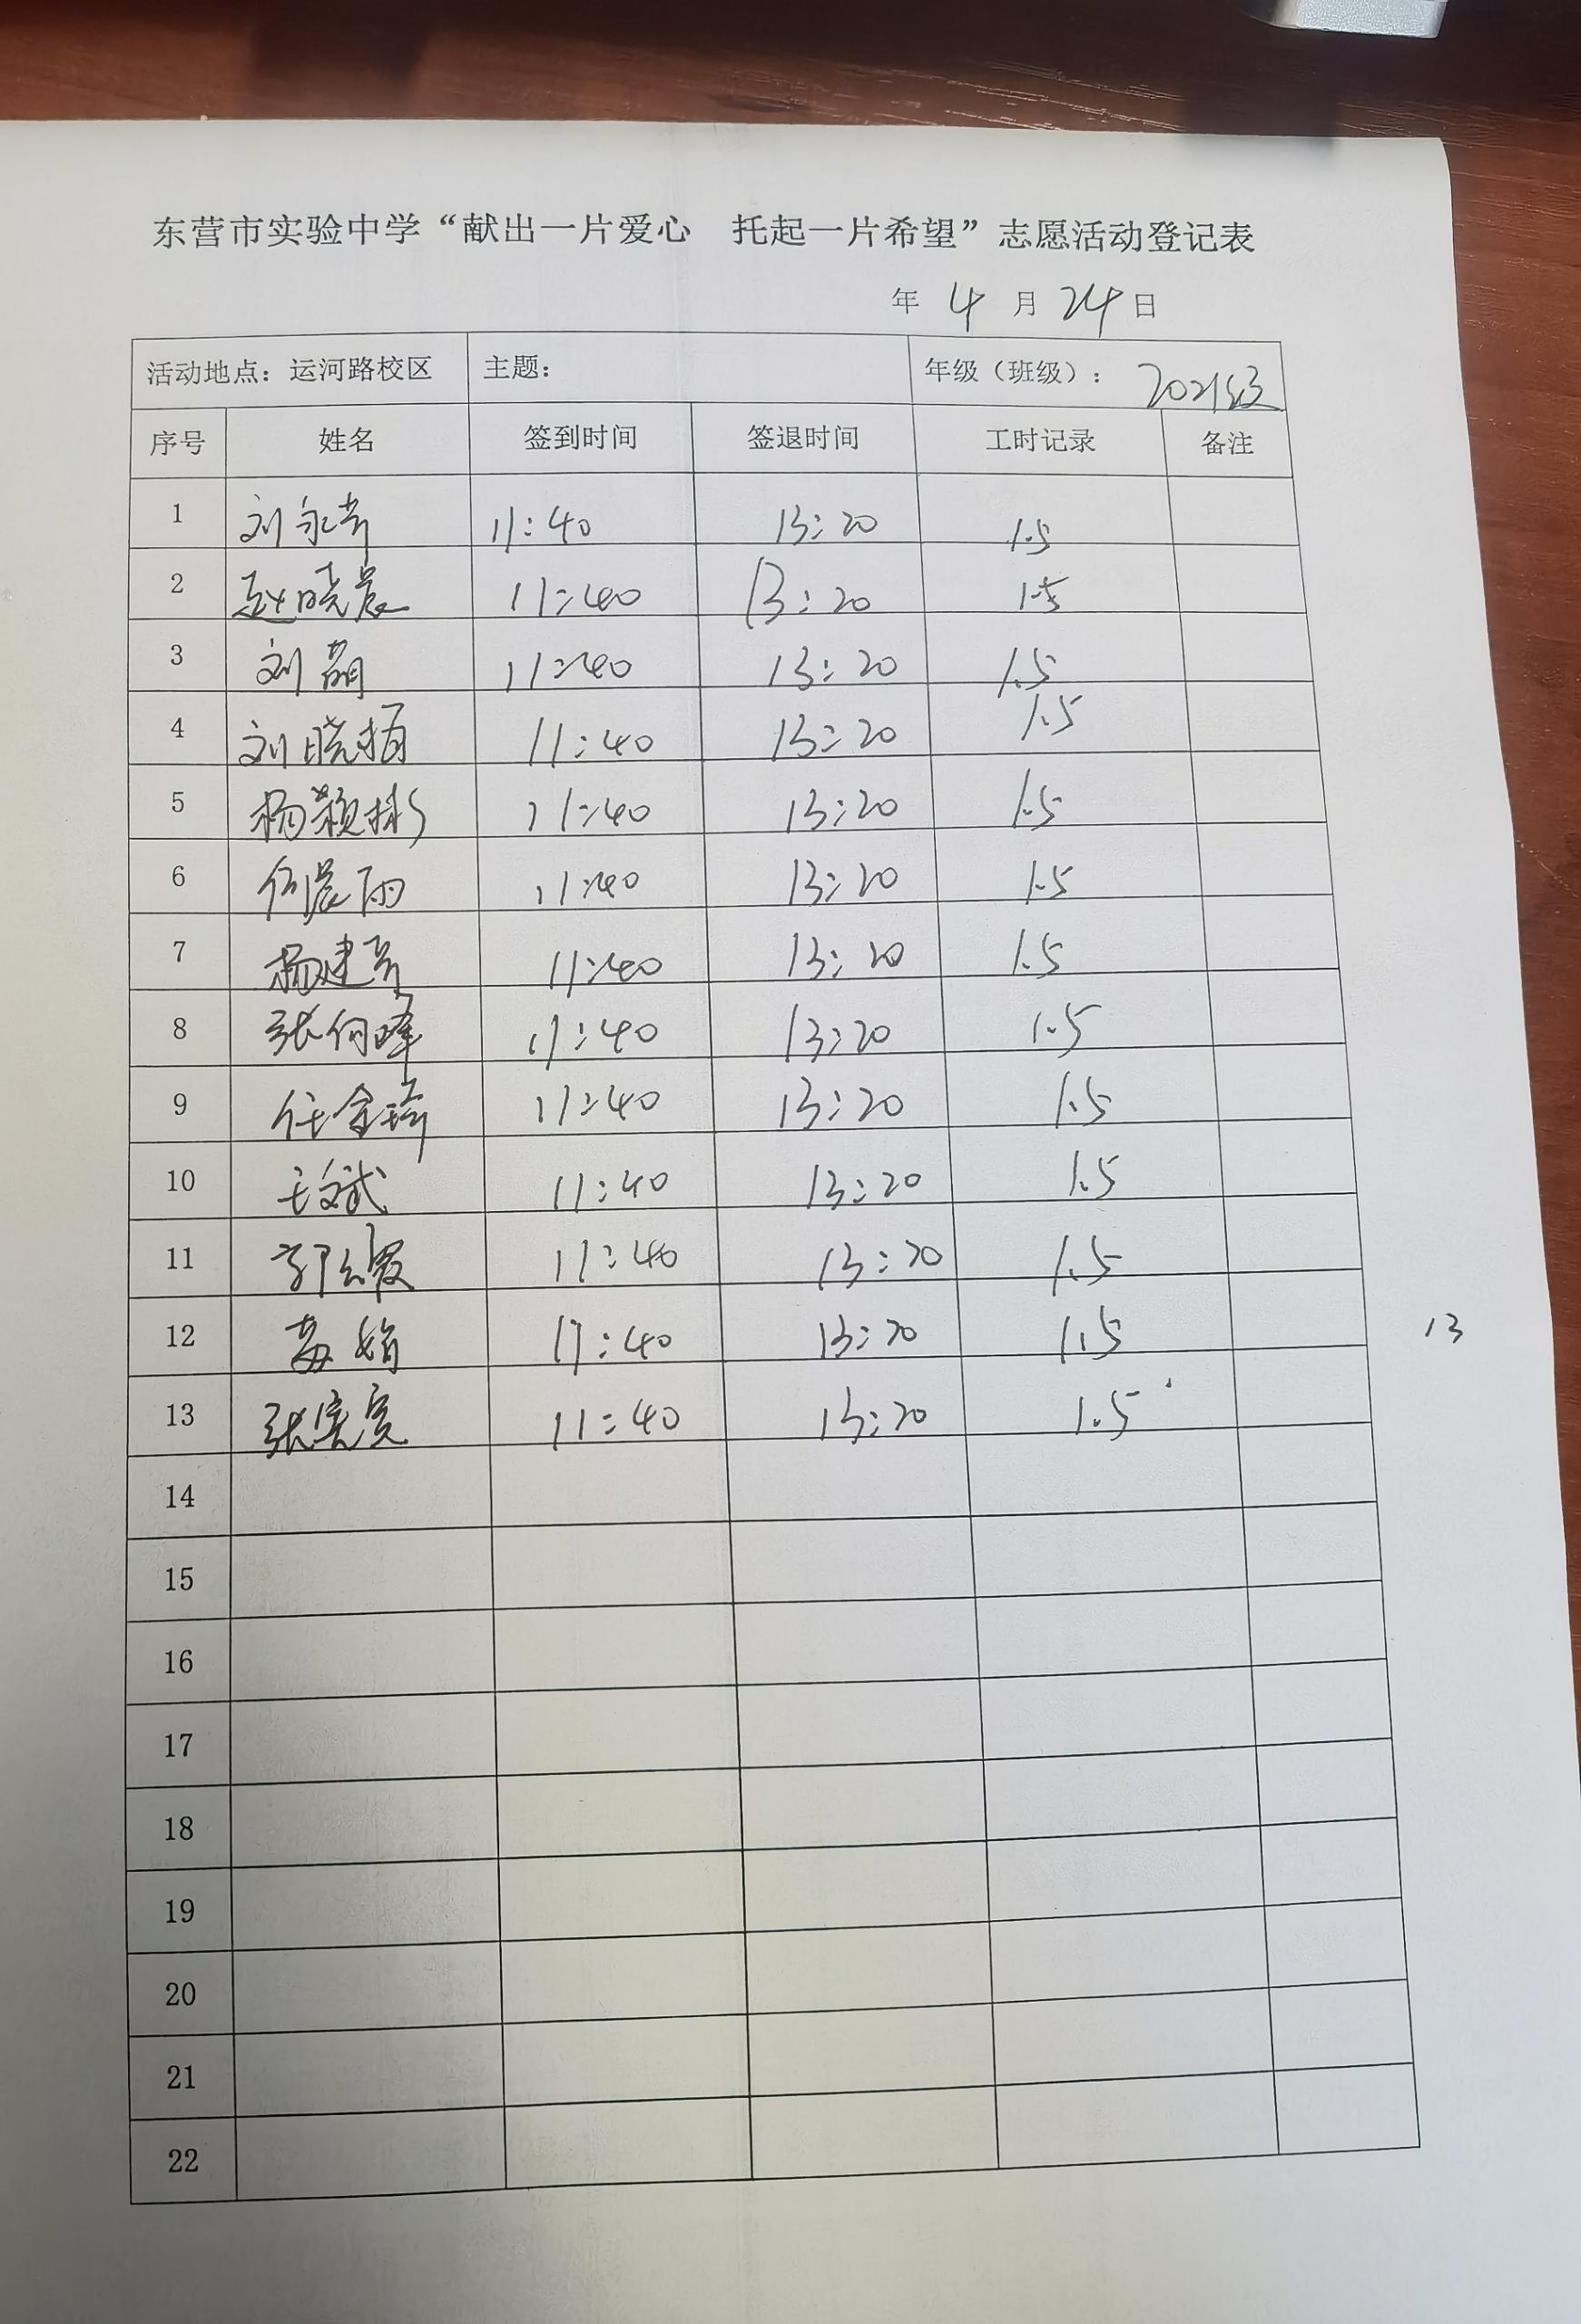 东营市实验中学“献出一片爱心 托起一片希望”志愿活动登记表
年 4 月 24 日
活动地点：运河路校区 主题： 年级（班级）： 2021级
序号 姓名 签到时间 签退时间 工时记录 备注
1 刘 11:40 13:20 1.5
2 赵晓晨 11:40 13:20 1.5
3 刘 11:40 13:20 1.5
4 刘晓 11:40 13:20 1.5
5 杨颖彬 11:40 13:20 1.5
6 晨雨 11:40 13:20 1.5
7 杨建 11:40 13:20 1.5
8 张向峰 11:40 13:20 1.5
9 任金琦 11:40 13:20 1.5
10 王斌 11:40 13:20 1.5
11 郭 11:40 13:20 1.5
12 娟 11:40 13:20 1.5
13
13 张 11:40 13:20 1.5
14
15
16
17
18
19
20
21
22